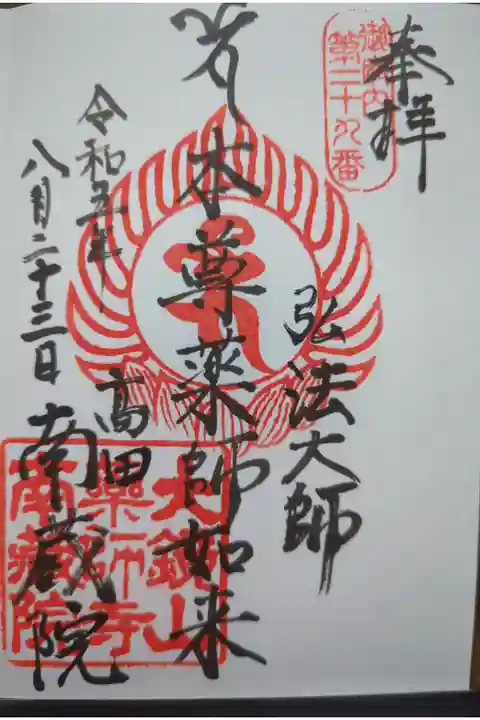 奉拝
御府内
第二十九番
弘法大師
本尊薬師如来
令和五年
八月二十三日
高田
南蔵院
大鏡山
薬師寺
南蔵院